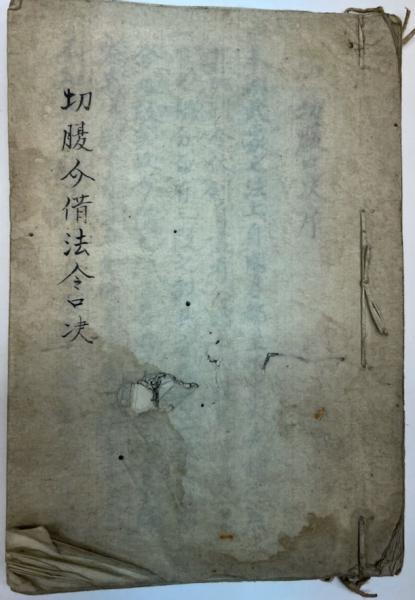 切腹介借法令口决